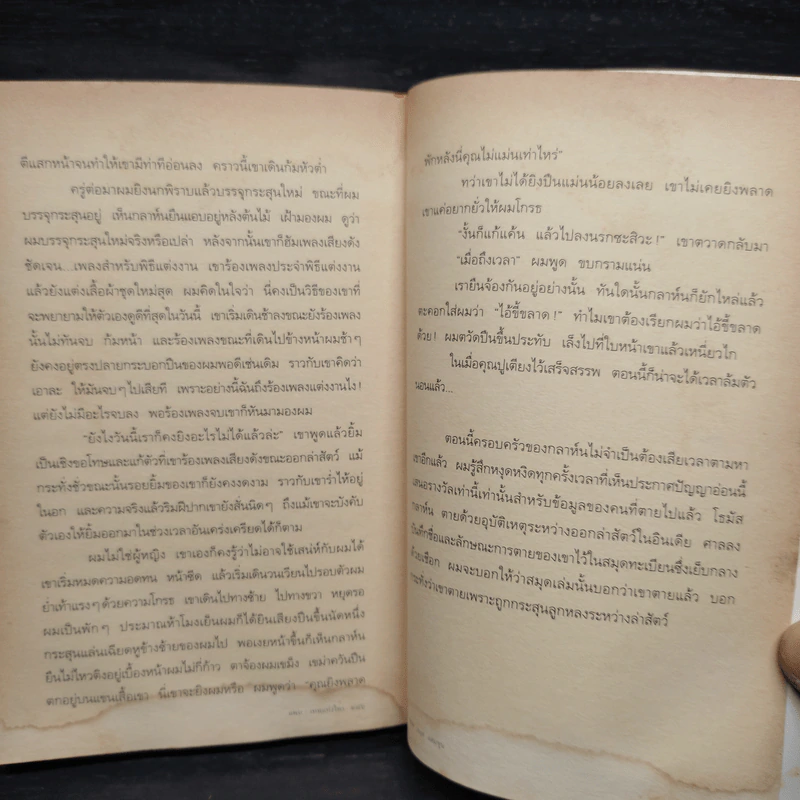 ตีแสกหน้าจนทำให้เขามีท่าทีอ่อนลง คราวนี้เขาเดินก้มหัวต่ำ
ครู่ต่อมาผมยิงนกพิราบแล้วบรรจุกระสุนใหม่ ขณะที่ผม
บรรจุกระสุนอยู่ เห็นกลาห์นยืนแอบอยู่หลังต้นไม้ เฝ้ามองผม ดูว่า
ผมบรรจุกระสุนใหม่จริงหรือเปล่า หลังจากนั้นเขาก็ฮัมเพลงเสียงดัง
ชัดเจน...เพลงสำหรับพิธีแต่งงาน เขาร้องเพลงประจำพิธีแต่งงาน
แล้วยังแต่งเสื้อผ้าชุดใหม่สุด ผมคิดในใจว่า นี่คงเป็นวิธีของเขาที่
จะพยายามให้ตัวเองดูดีที่สุดในวันนี้ เขาเริ่มเดินช้าลงขณะยังร้องเพลง
นั้นไม่ทันจบ ก้มหน้า และร้องเพลงขณะที่เดินไปข้างหน้าผมช้าๆ
ยังคงอยู่ตรงปลายกระบอกปืนของผมพอดีเช่นเดิม ราวกับเขาคิดว่า
เอาละ ให้มันจบๆ ไปเสียที เพราะอย่างนี้ฉันถึงร้องเพลงแต่งงานไง!
แต่ยังไม่มีอะไรจบลง พอร้องเพลงจบเขาก็หันมามองผม
"ยังไงวันนี้เราก็คงยิงอะไรไม่ได้แล้วล่ะ" เขาพูดแล้วยิ้ม
เป็นเชิงขอโทษและแก้ตัวที่เขาร้องเพลงเสียงดังขณะออกล่าสัตว์ แม้
กระทั่งชั่วขณะนั้นรอยยิ้มของเขาก็ยังคงงดงาม ราวกับเขาร่ำไห้อยู่
ในอก และความจริงแล้วริมฝีปากเขายังสั่นนิดๆ ถึงแม้เขาจะบังคับ
ตัวเองให้ยิ้มออกมาในช่วงเวลาอันเคร่งเครียดได้ก็ตาม
ผมไม่ใช่ผู้หญิง เขาเองก็คงรู้ว่าไม่อาจใช้เสน่ห์กับผมได้
เขาเริ่มหมดความอดทน หน้าซีด แล้วเริ่มเดินวนเวียนไปรอบตัวผม
ย่ำเท้าแรงๆ ด้วยความโกรธ เขาเดินไปทางซ้าย ไปทางขวา หยุดรอ
ผมเป็นพักๆ ประมาณห้าโมงเย็นผมก็ได้ยินเสียงปืนขึ้นนัดหนึ่ง
กระสุนแล่นเฉียดหูข้างซ้ายของผมไป พอเงยหน้าขึ้นก็เห็นกลาห์น
ยืนไม่ไหวติงอยู่เบื้องหน้าผมไม่กี่ก้าว ตาจ้องผมเขม็ง เขม่าควันปืน
ตกอยู่บนแขนเสื้อเขา นี่เขาจะยิงผมหรือ ผมพูดว่า "คุณยิงพลาด
พักหลังนี่คุณไม่แม่นเท่าไหร่"
ทว่าเขาไม่ได้ยิงปืนแม่นน้อยลงเลย เขาไม่เคยยิงพลาด
เขาแค่อยากยั่วให้ผมโกรธ
"งั้นก็แก้แค้น แล้วไปลงนรกซะสิวะ!" เขาตวาดกลับมา
"เมื่อถึงเวลา" ผมพูด ขบกรามแน่น
เรายืนจ้องกันอยู่อย่างนั้น ทันใดนั้นกลาห์นก็ยักไหล่แล้ว
ตะคอกใส่ผมว่า "ไอ้ขี้ขลาด!" ทำไมเขาต้องเรียกผมว่าไอ้ขี้ขลาด
ด้วย! ผมตวัดปืนขึ้นประทับ เล็งไปที่ใบหน้าเขาแล้วเหนี่ยวไก
ในเมื่อคุณปูเตียงไว้เสร็จสรรพ ตอนนี้ก็น่าจะได้เวลาล้มตัว
นอนแล้ว...
ตอนนี้ครอบครัวของกลาห์นไม่จำเป็นต้องเสียเวลาตามหา
เขาอีกแล้ว ผมรู้สึกหงุดหงิดทุกครั้งเวลาที่เห็นประกาศปัญญาอ่อนนี้
เสนอรางวัลเท่านี้เท่านั้นสำหรับข้อมูลของคนที่ตายไปแล้ว โธมัส
กลาห์น ตายด้วยอุบัติเหตุระหว่างออกล่าสัตว์ในอินเดีย ศาลลง
บันทึกชื่อและลักษณะการตายของเขาไว้ในสมุดทะเบียนซึ่งเย็บกลาง
ด้วยเชือก ผมจะบอกให้ว่าสมุดเล่มนั้นบอกว่าเขาตายแล้ว บอก
กระทั่งว่าเขาตายเพราะถูกกระสุนลูกหลงระหว่างล่าสัตว์